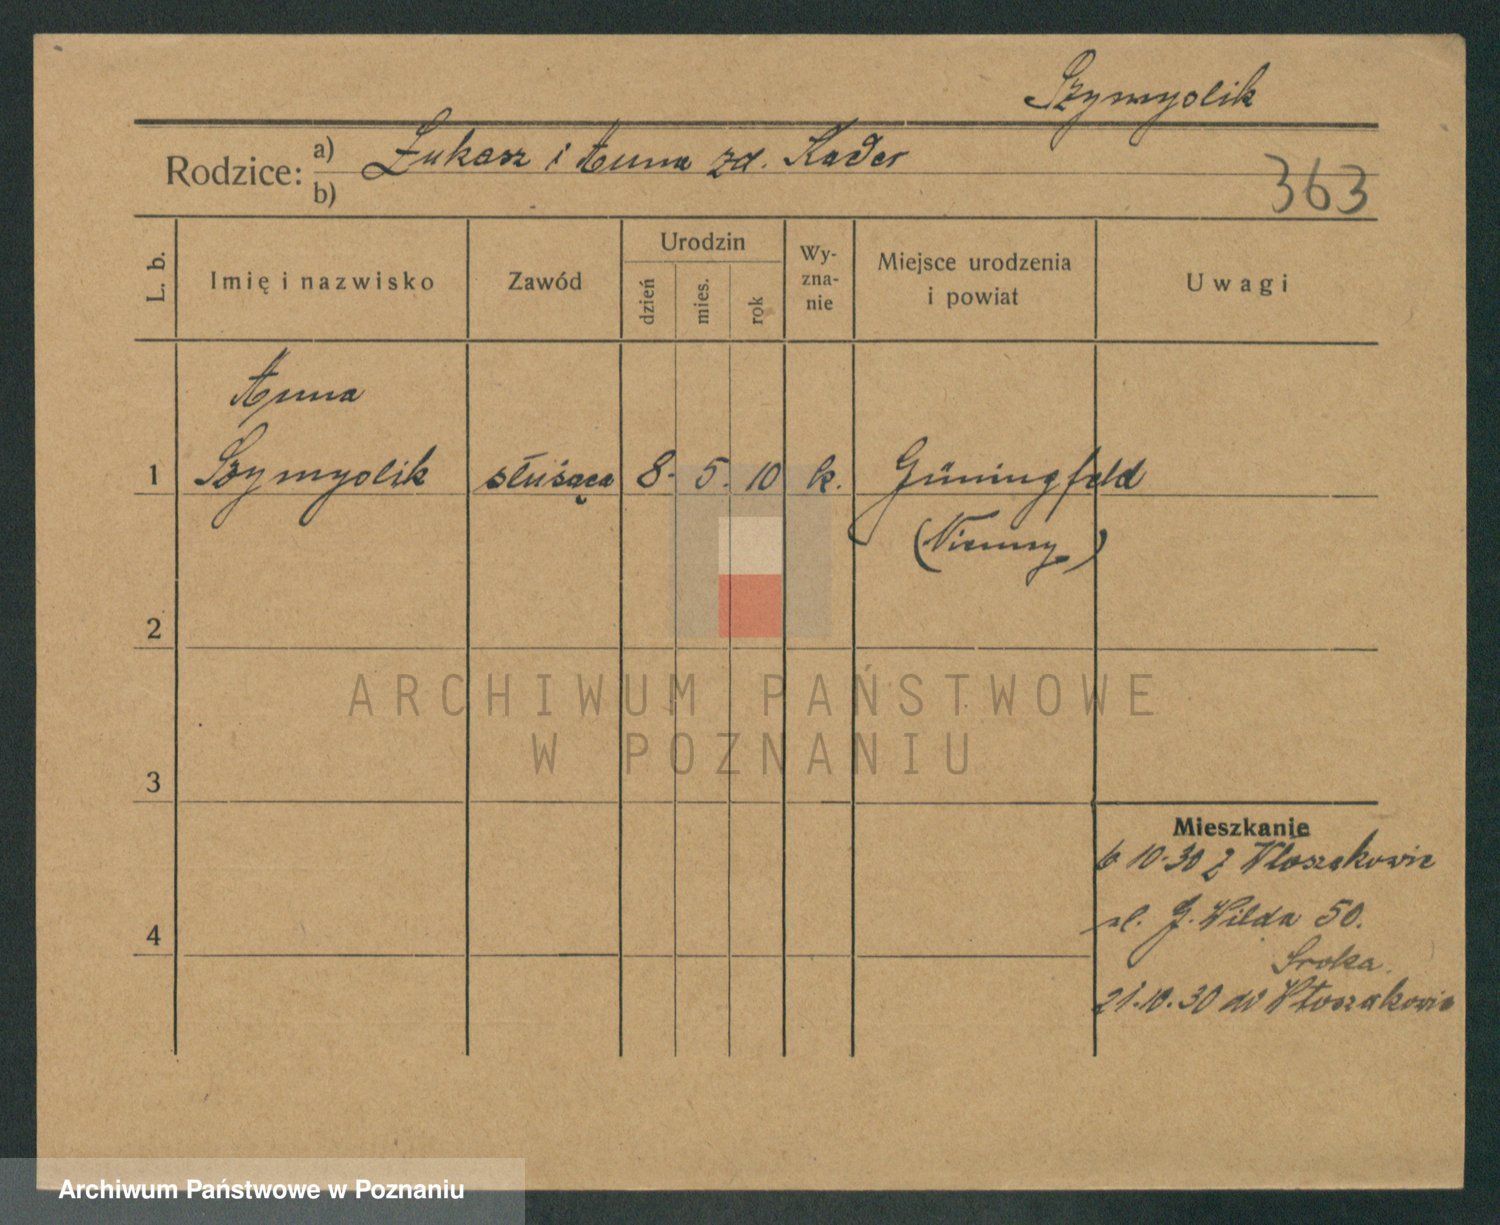 Szymyślik
Rodzice: a) Łukasz i Anna zd. Kader
b)
363
L. b.
Imię i nazwisko
Zawód
Urodzin
dzień
mies.
rok
Wy-
zna-
nie
Miejsce urodzenia
i powiat
Uwagi
Anna
1 Szymyślik służąca 8. 5. 10 k. Güningfeld
(Niemcy)
2
3
4
ARCHIWUM PAŃSTWOWE
W POZNANIU
Mieszkanie
6 10.30 z Włoszakowic
ul. G. Wilda 50.
Sroka
21.10.30 do Włoszakowic
Archiwum Państwowe w Poznaniu